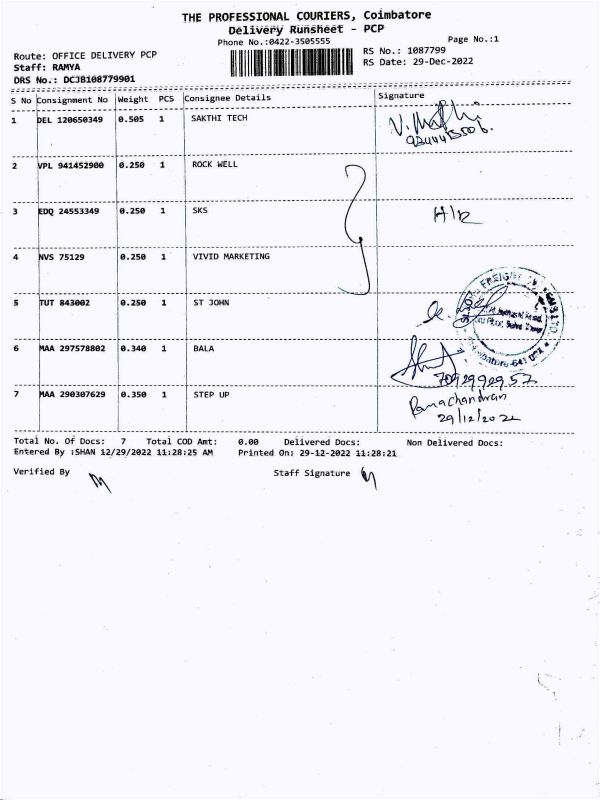 THE PROFESSIONAL COURIERS, Coimbatore
Delivery Runsheet - PCP
Phone No.:0422-3505555
Page No.:1
Route: OFFICE DELIVERY PCP
RS No.: 1087799
Staff: RAMYA
RS Date: 29-Dec-2022
DRS No.: DCJB108779901
S No Consignment No Weight PCS Consignee Details Signature
1 DEL 120650349 0.505 1 SAKTHI TECH
2 VPL 941452900 0.250 1 ROCK WELL
3 EDQ 24553349 0.250 1 SKS H/R
4 NVS 75129 0.250 1 VIVID MARKETING
5 TUT 843002 0.250 1 ST JOHN
6 MAA 297578802 0.340 1 BALA
7 MAA 290307629 0.350 1 STEP UP Ramachandran
29/12/2022
Total No. Of Docs: 7 Total COD Amt: 0.00 Delivered Docs: Non Delivered Docs:
Entered By :SHAN 12/29/2022 11:28:25 AM Printed On: 29-12-2022 11:28:21
Verified By Staff Signature